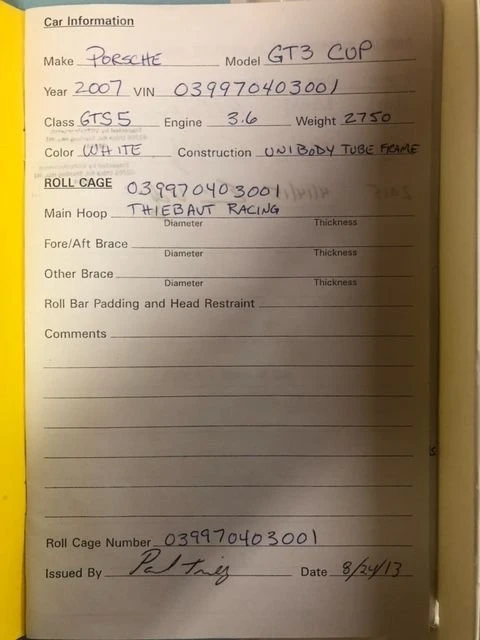 Car Information
Make PORSCHE Model GT3 CUP
Year 2007 VIN 039970403001
Class GTS5 Engine 3.6 Weight 2750
Color WHITE Construction UNIBODY TUBE FRAME
ROLL CAGE 039970403001
Main Hoop THIEBAUT RACING
Diameter Thickness
Fore/Aft Brace
Diameter Thickness
Other Brace
Diameter Thickness
Roll Bar Padding and Head Restraint
Comments
Roll Cage Number 039970403001
Issued By Date 8/24/13